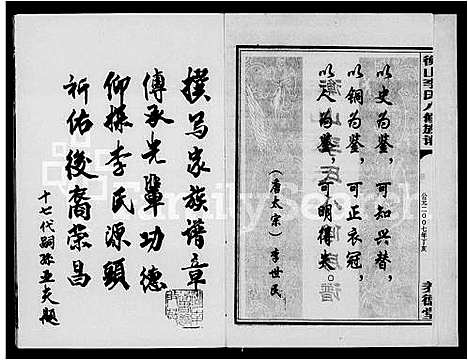 衡山李氏八修族谱
公元二〇〇七年丁亥
以史为鉴，可知兴替，
以铜为鉴，可正衣冠，
以人为鉴，可明得失。
（唐太宗）李世民
撰写家族谱章
傳承先輩功德
仰探李氏源頭
祈佑後裔荣昌
十七代嗣孫亚夫题
FamilySearch